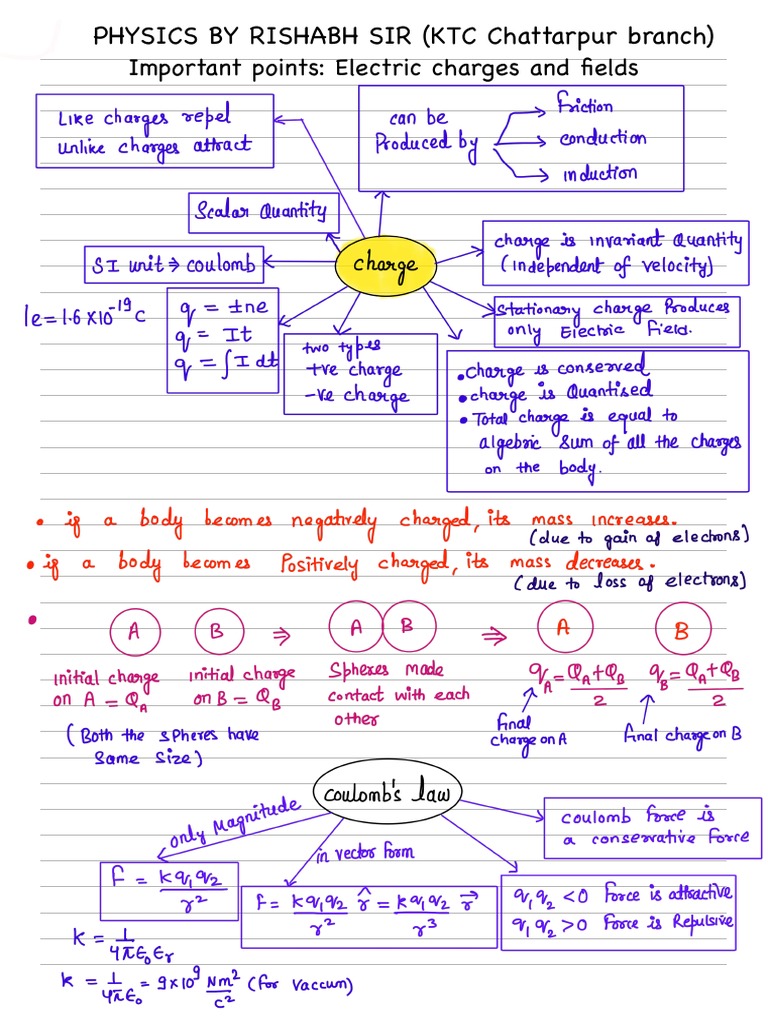 PHYSICS BY RISHABH SIR (KTC Chattarpur branch)
Important points: Electric charges and fields
Like charges repel
unlike charges attract
can be
Produced by
friction
conduction
induction
Scalar Quantity
SI unit ⇒ coulomb
charge
charge is invariant Quantity
(independent of velocity)
1e = 1.6 × 10⁻¹⁹ C
q = ±ne
q = It
q = ∫I dt
two types
+ve charge
-ve charge
Stationary charge Produces
only Electric field.
• charge is conserved
• charge is Quantised
• Total charge is equal to
algebric sum of all the charges
on the body.
• if a body becomes negatively charged, its mass increases.
(due to gain of electrons)
• if a body becomes Positively charged, its mass decreases.
(due to loss of electrons)
• A B ⇒ A B ⇒ A B
initial charge
on A = Q_A
initial charge
on B = Q_B
Spheres made
contact with each
other
q_A = (Q_A + Q_B)/2
q_B = (Q_A + Q_B)/2
final
charge on A
final charge on B
(Both the spheres have
same size)
Coulomb's law
only Magnitude
in vector form
coulomb force is
a conservative force
F = kq₁q₂/r²
F = kq₁q₂/r² r̂ = kq₁q₂/r³ r⃗
q₁q₂ < 0 force is attractive
q₁q₂ > 0 force is Repulsive
k = 1/4πε₀εᵣ
k = 1/4πε₀ = 9×10⁹ Nm²/c² (for vaccum)